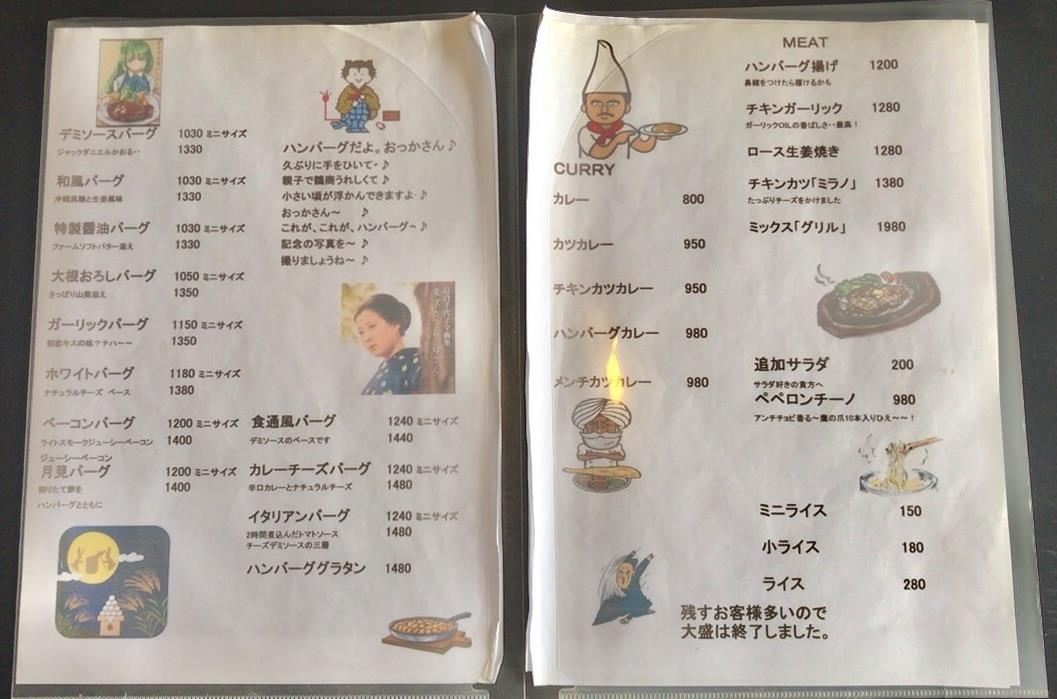 デミソースバーグ 1030 ミニサイズ
ジャックダニエルかおる・・ 1330
和風バーグ 1030 ミニサイズ
沖縄黒糖と生姜風味 1330
特製醤油バーグ 1030 ミニサイズ
ファームソフトバター添え 1330
大根おろしバーグ 1050 ミニサイズ
さっぱり山葵添え 1350
ガーリックバーグ 1150 ミニサイズ
初恋キスの味?ナハ~~ 1350
ホワイトバーグ 1180 ミニサイズ
ナチュラルチーズ ベース 1380
ベーコンバーグ 1200 ミニサイズ
ライトスモークジューシーベーコン 1400
ジューシーベーコン
月見バーグ 1200 ミニサイズ
割りたて卵を 1400
ハンバーグとともに
ハンバーグだよ。おっかさん♪
久ぶりに手をひいて~♪
親子で鶴商うれしくて♪
小さい頃が浮かんできますよ~♪
おっかさん~ ♪
これが、これが、ハンバーグ~♪
記念の写真を~ ♪
撮りましょうね~ ♪
食通風バーグ 1240 ミニサイズ
デミソースのベースです 1440
カレーチーズバーグ 1240 ミニサイズ
辛口カレーとナチュラルチーズ 1480
イタリアンバーグ 1240 ミニサイズ
2時間煮込んだトマトソース 1480
チーズデミソースの三層
ハンバーググラタン 1480
CURRY
カレー 800
カツカレー 950
チキンカツカレー 950
ハンバーグカレー 980
メンチカツカレー 980
MEAT
ハンバーグ揚げ 1200
鼻緒をつけたら履けるかも
チキンガーリック 1280
ガーリックOILの香ばしさ・・最高!
ロース生姜焼き 1280
チキンカツ「ミラノ」 1380
たっぷりチーズをかけました
ミックス「グリル」 1980
追加サラダ 200
サラダ好きの貴方へ
ペペロンチーノ 980
アンチチョビ香る~鷹の爪10本入りひえ~~!
ミニライス 150
小ライス 180
ライス 280
残すお客様多いので
大盛は終了しました。